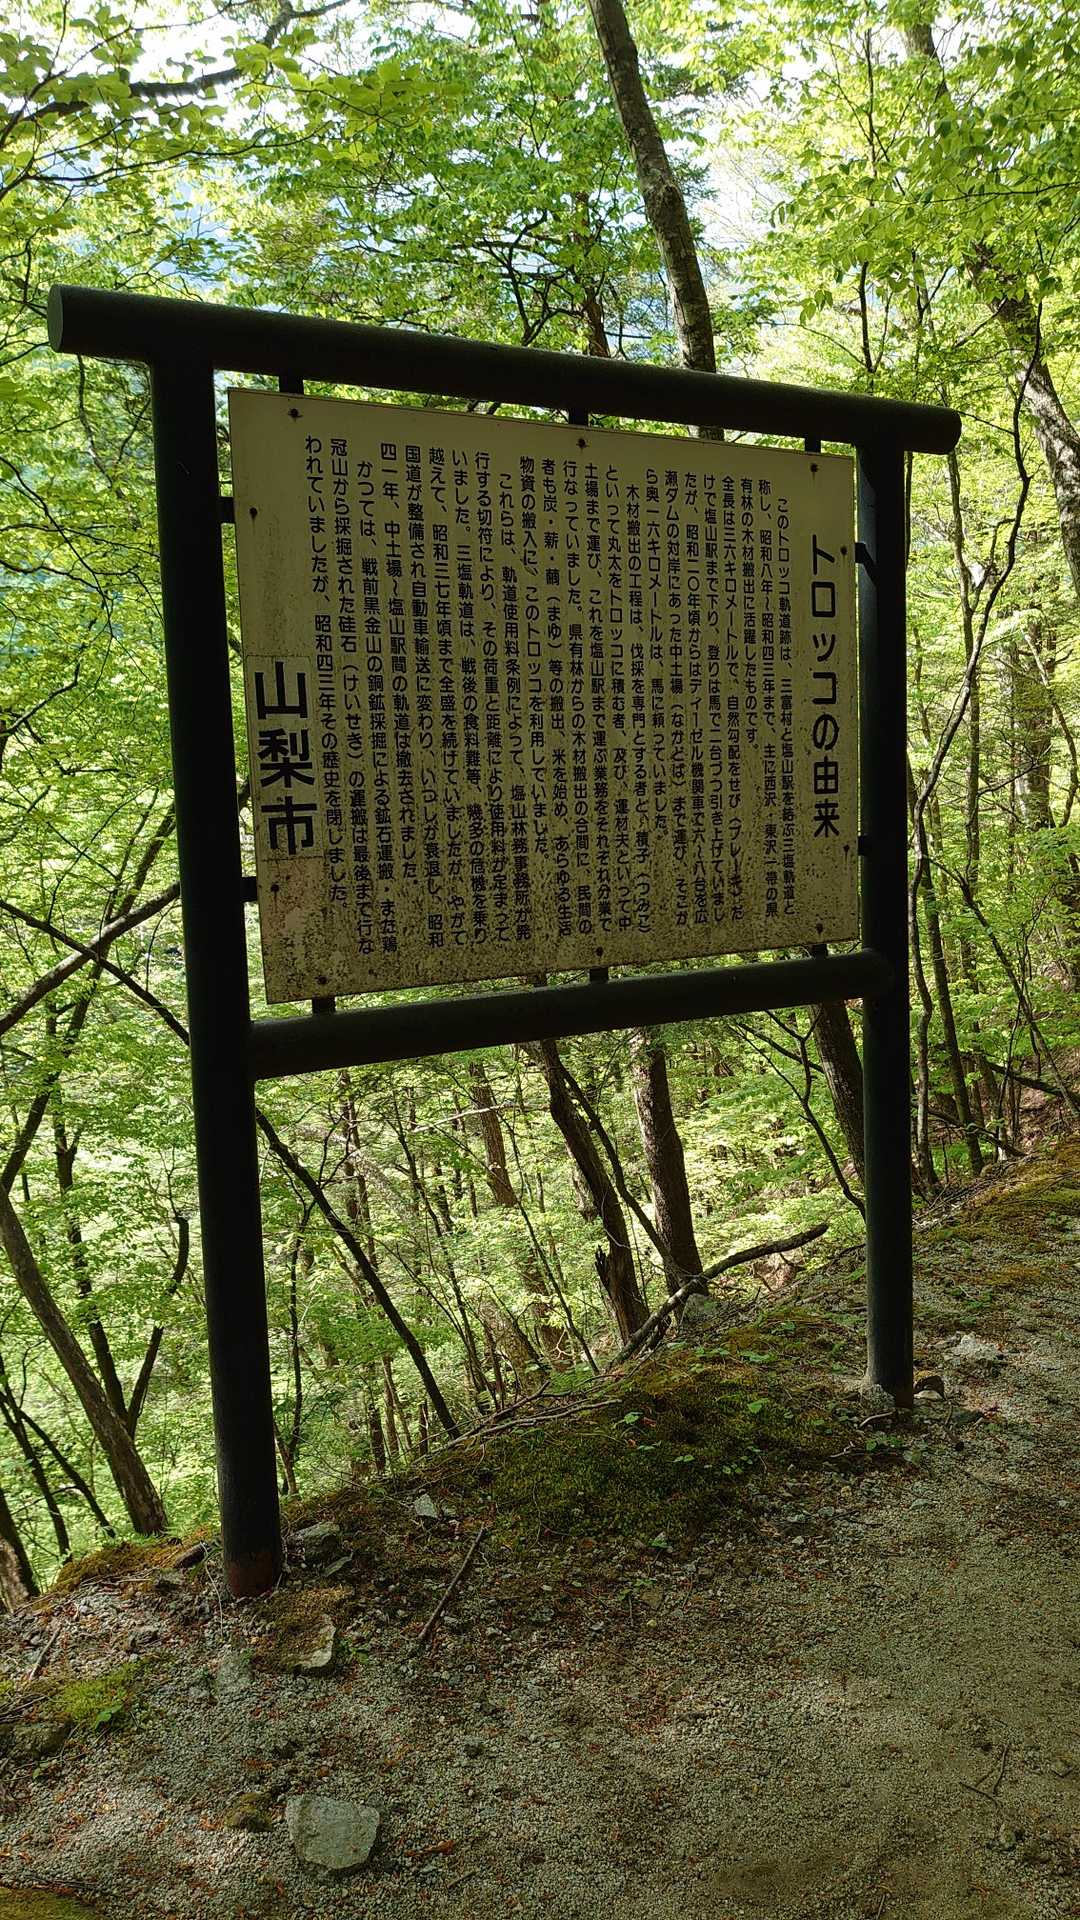 トロッコの由来
このトロッコ軌道跡は、三富村と塩山駅を結ぶ三塩軌道と
称し、昭和八年～昭和四三年まで、主に西沢・東沢一帯の県
有林の木材搬出に活躍したものです。
全長は三六キロメートルで、自然勾配をせび（ブレーキ）した
けで塩山駅まで下り、登りは馬で二台づつ引き上げていまし
たが、昭和二〇年頃からはディーゼル機関車で六～八台を広
瀬ダムの対岸にあった中土場（なかどば）まで運び、そこか
ら奥一六キロメートルは、馬に頼っていました。
木材搬出の工程は、伐採を専門とする者と、積子（つみこ）
といって丸太をトロッコに積む者、及び、運材夫といって中
土場まで運び、これを塩山駅まで運ぶ業務をそれぞれ分業で
行なっていました。県有林からの木材搬出の合間に、民間の
者も炭・薪・繭（まゆ）等の搬出、米を始め、あらゆる生活
物資の搬入に、このトロッコを利用していました。
これらは、軌道使用料条例によって、塩山林務事務所が発
行する切符により、その荷重と距離により使用料が定まって
いました。三塩軌道は、戦後の食料難等、幾多の危機を乗り
越えて、昭和三七年頃まで全盛を続けていましたが、やがて
国道が整備され自動車輸送に変わり、いつしか衰退し、昭和
四一年、中土場～塩山駅間の軌道は撤去されました。
かつては、戦前黒金山の銅鉱採掘による鉱石運搬・また鶏
冠山から採掘された硅石（けいせき）の運搬は最後まで行な
われていましたが、昭和四三年その歴史を閉じました。
山梨市